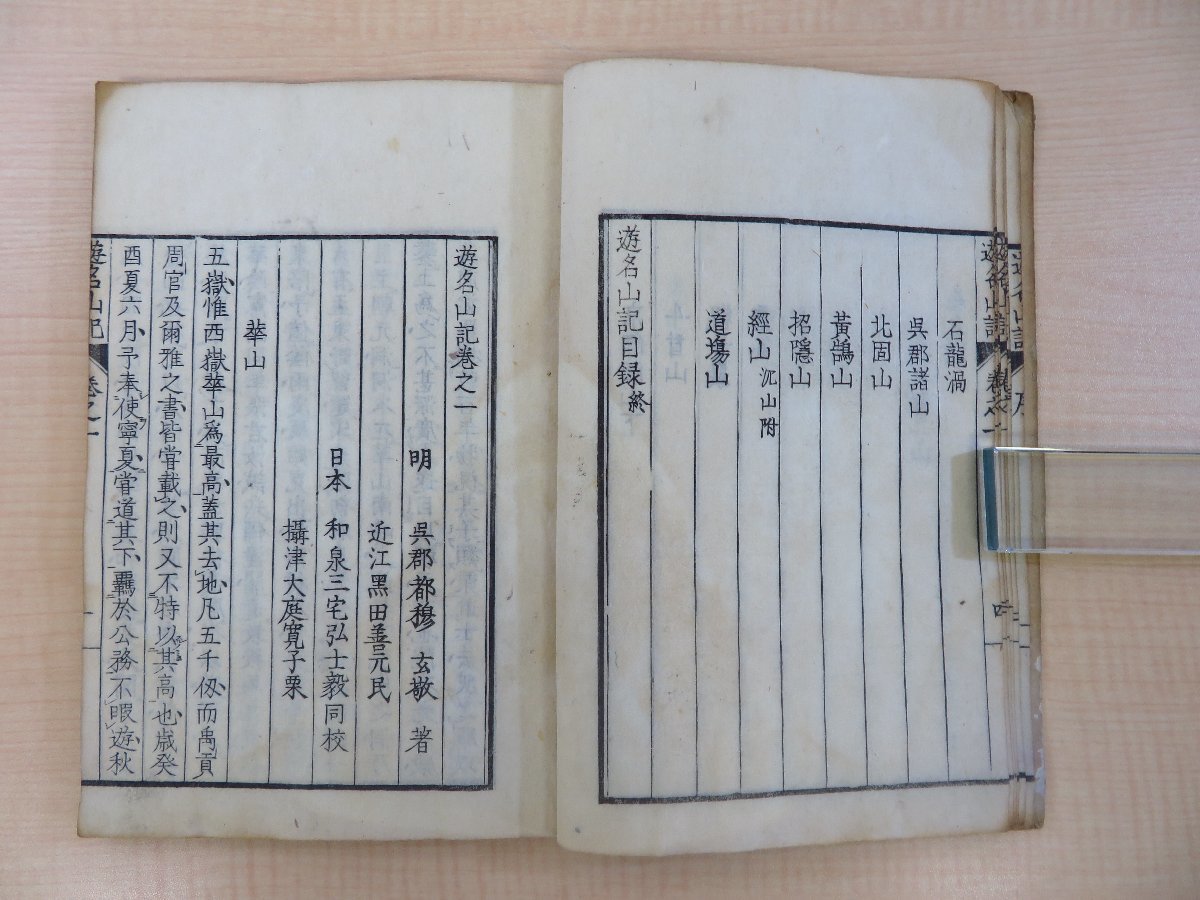 石龍渦
吳郡諸山
北固山
黃鵠山
招隱山
經山 沉山附
道塲山
遊名山記目録終
遊名山記卷之一
明 吳郡都穆 玄敬 著
近江黑田善元民
日本 和泉三宅弘士毅同校
攝津大庭寛子栗
華山
五嶽惟西嶽華山爲最高蓋其去地凡五千仭而禹貢
周官及爾雅之書皆嘗載之則又不特以其高也歲癸
酉夏六月予奉使寧夏嘗道其下羈於公務不暇遊秋
遊名山記 卷之一